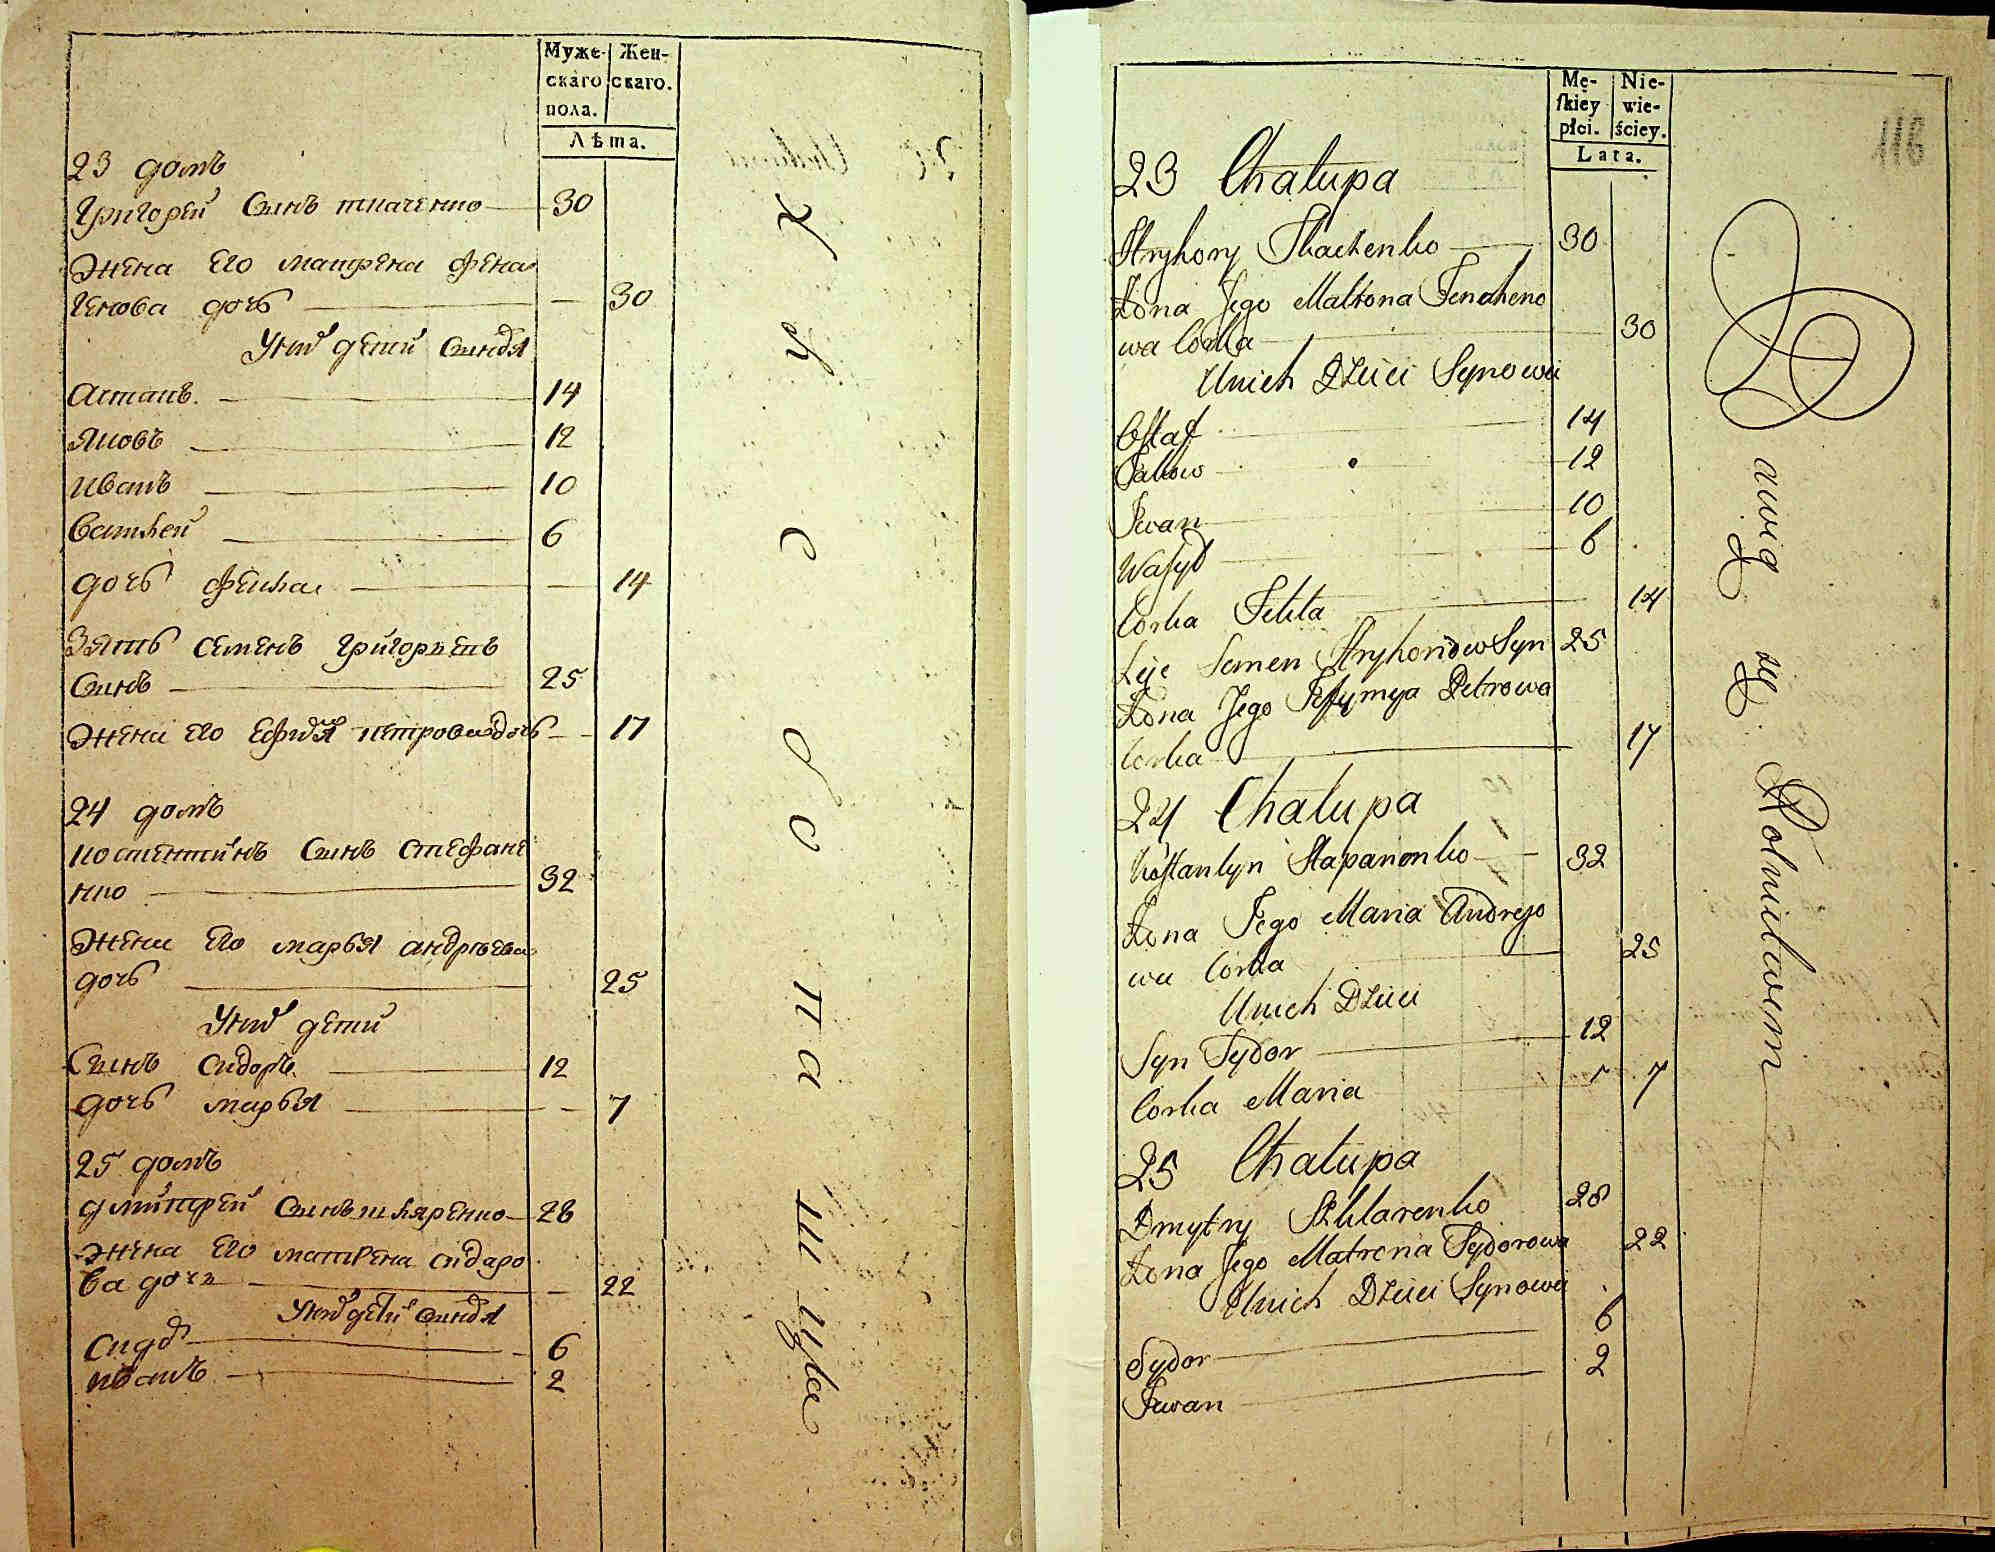 Муже-
скаго
пола.
Жен-
скаго.
Лѣта.
23 домъ
Григорей Синъ ткаченко 30
Жена Его матрена фена
генова дочъ 30
У них детей Синовя
Астапъ 14
Яковъ 12
Иванъ 10
Василей 6
дочъ фекла 14
Зять Семенъ григорьевъ
Синъ 25
Жена Его Ефимя петрова дочъ 17
24 домъ
Костентинъ Синъ Стефане
нко 32
Жена Его марья андреева
дочъ 25
У них дети
Синъ Сидоръ 12
дочъ марья 7
25 домъ
дмитрей Синъ шкляренко 28
Жена Его матрена сидаро
ва дочъ 22
У них дети Синовя
Сидор 6
иванъ 2
Х л е б о п а ш ц ы
Mę-
skiey
płci.
Nie-
wie-
ściey.
Lata.
116
23 Chałupa
Hryhory Tkaczenko 30
Żona Jego Matrona Fenoheno
wa Corka 30
U nich Dzieci Synowi
Ostaf 14
Jakow 12
Jwan 10
Wasyl 6
Corka Fekla 14
Zięć Semen Hryhoriów Syn 25
Żona Jego Jefymya Petrowa
Corka 17
24 Chałupa
Kostantyn Stapanenko 32
Żona Jego Maria Andrejo
wa Corka 25
U nich Dzieci
Syn Sydor 12
Corka Maria 7
25 Chałupa
Dmytry Szklarenko 28
Żona Jego Matrona Sydorowa 22
U nich Dzieci Synowi
Sydor 6
Jwan 2
Bawią się Rolnictwem